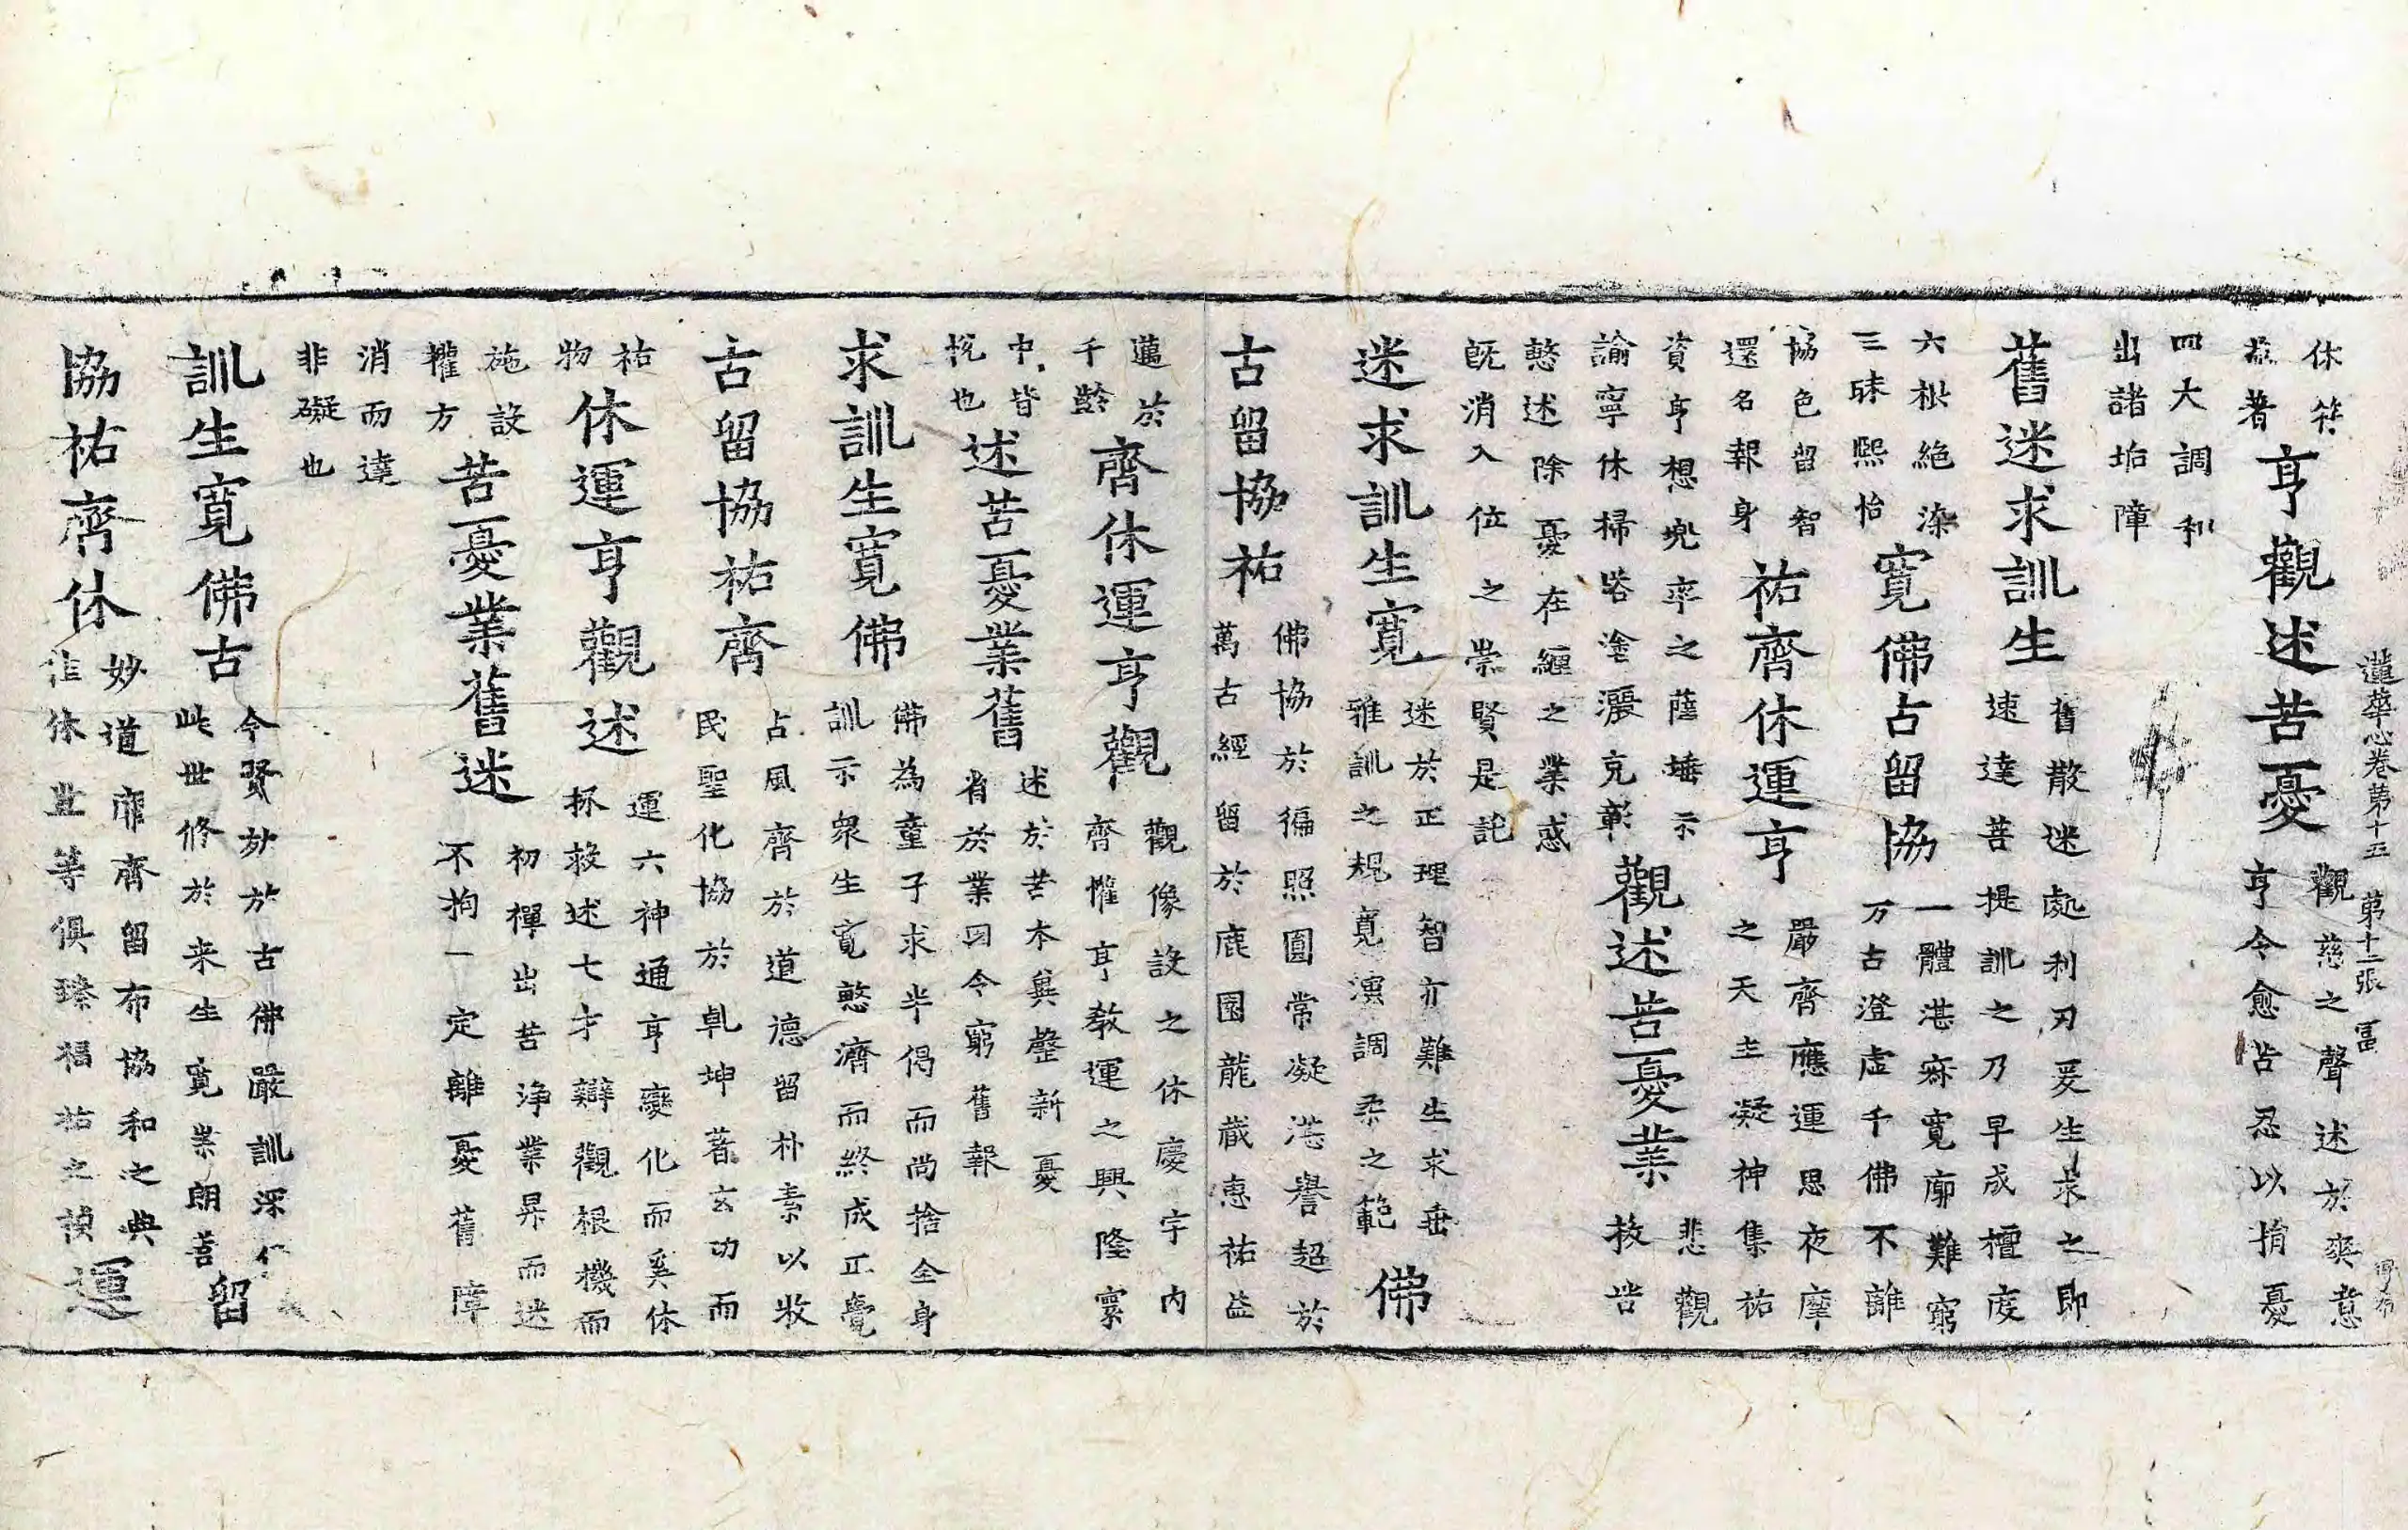 蓮華心卷第十五 第十二張 冨
休符
亨觀述苦憂
觀慈之聲述於爽意
亨令愈苦忍以捐憂
四大調和
出諸垢障
舊迷求訓生
舊散迷處利刃爰生求之即
速達菩提訓之乃早成檀度
六根絶染
三昧熙怡
寛佛古留協
一體湛寂寛廓難窮
万古澄虚千佛不離
協色留智
還名報身
祐齊休運亨
嚴齊應運思夜摩
之天主凝神集祐
資亨想兜率之薩埵示
諭寧休掃咎塗灑克彰
觀述苦憂業
悲觀
救苦
愍述除憂在纏之業惑
既消入位之崇賢是託
迷求訓生寛
迷於正理智亦難生求垂
雅訓之規寛演調柔之範
佛
古留協祐
佛協於徧照圓常凝湛譽超於
萬古經留於鹿園龍藏惠祐益
邁於
千齡
齊休運亨觀
觀像設之休慶宇内
齊懽亨教運之興隆寰
中皆
悅也
述苦憂業舊
述於苦本兾罄新憂
省於業因令窮舊報
求訓生寛佛
佛為童子求半偈而尚捨全身
訓示衆生寛愍濟而終成正覺
古留協祐齊
古風齊於道德留朴素以收
民聖化協於乹坤著玄功而
祐
物
休運亨觀述
運六神通亨變化而奚休
拯救述七才辯觀根機而
施設
權方
苦憂業舊迷
初禪出苦浄業昇而迷
不拘一定離憂舊障
消而達
非礙也
訓生寛佛古
今賢於古佛嚴訓深
此世修於来生寛崇朗善
留
協祐齊休
妙道齊留布協和之典
休並等俱臻福祐之禎
運